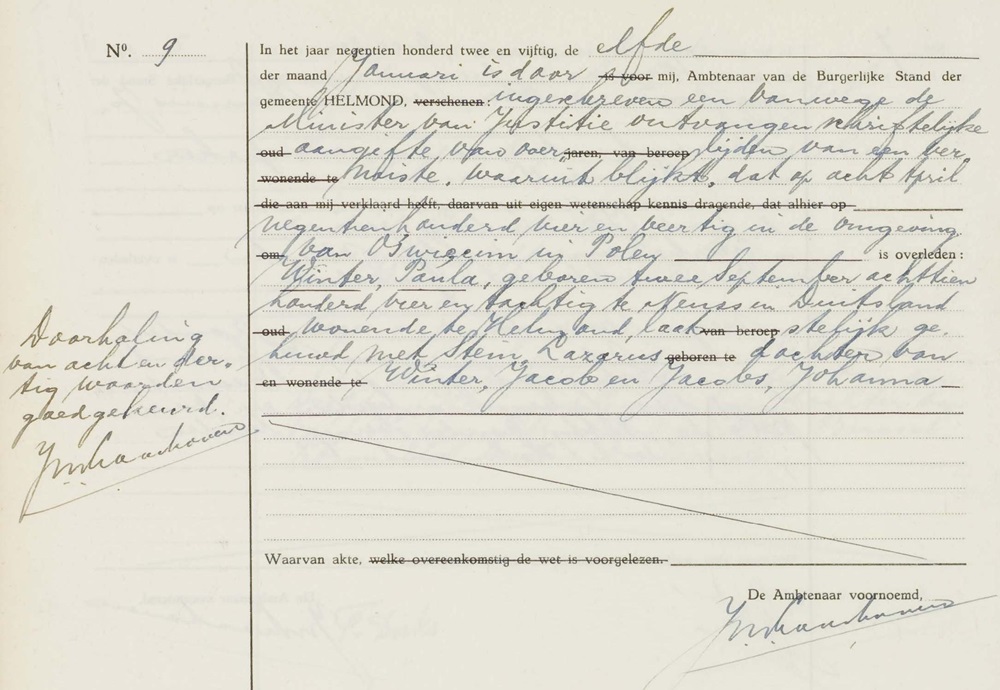 Nº. 9
In het jaar negentien honderd twee en vijftig, de elfde
der maand Januari is door is voor mij, Ambtenaar van de Burgerlijke Stand der
gemeente HELMOND, verschenen: ingeschreven een vanwege de
Minister van Justitie ontvangen schriftelijke
oud aangifte van over jaren, van beroep lijden van een ver
wonende te miste, waaruit blijkt, dat op acht April
die aan mij verklaard heeft, daarvan uit eigen wetenschap kennis dragende, dat alhier op
negentienhonderd vier en veertig in de omgeving
om van Oswiecim in Polen is overleden:
Winter, Paula, geboren twee September achttien
honderd vier en tachtig te Neuss in Duitsland
oud wonende te Helmond, laat van beroep stelijk ge-
huwd met Stein, Lazarus geboren te dochter van
en wonende te Winter, Jacob en Jacobs, Johanna
Doorhaling
van acht en der-
tig woorden
goedgekeurd.
Waarvan akte, welke overeenkomstig de wet is voorgelezen.
De Ambtenaar voornoemd,